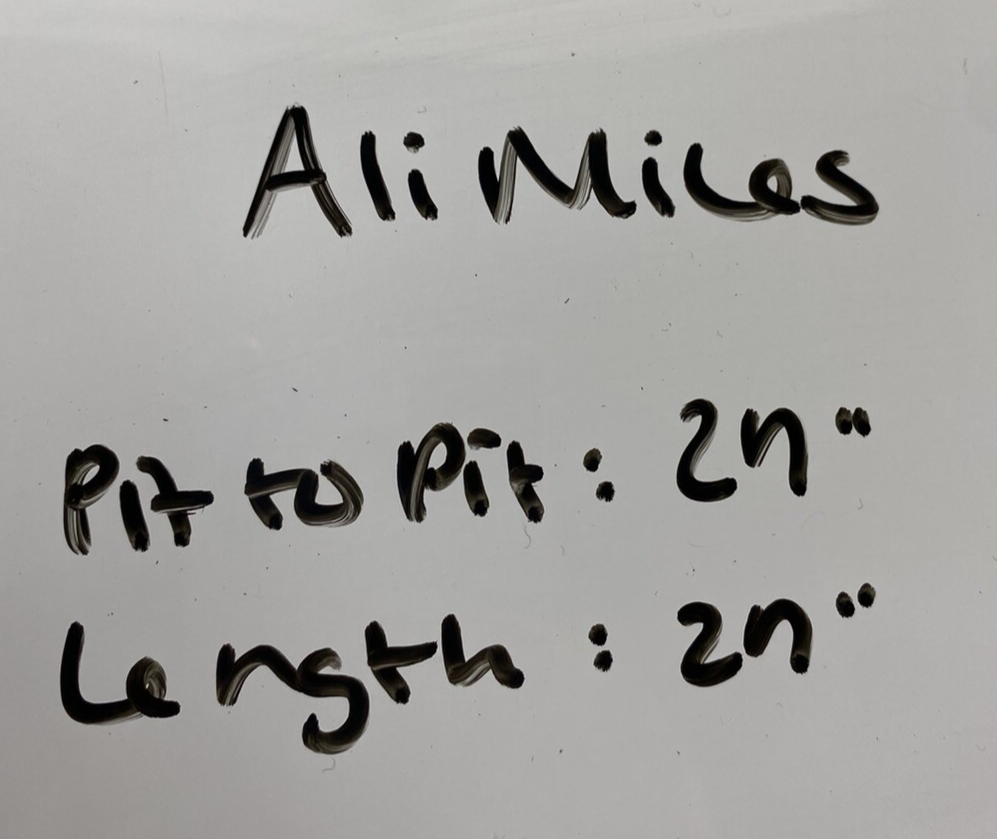 Ali Miles
Pit to Pit : 27"
Length : 27"